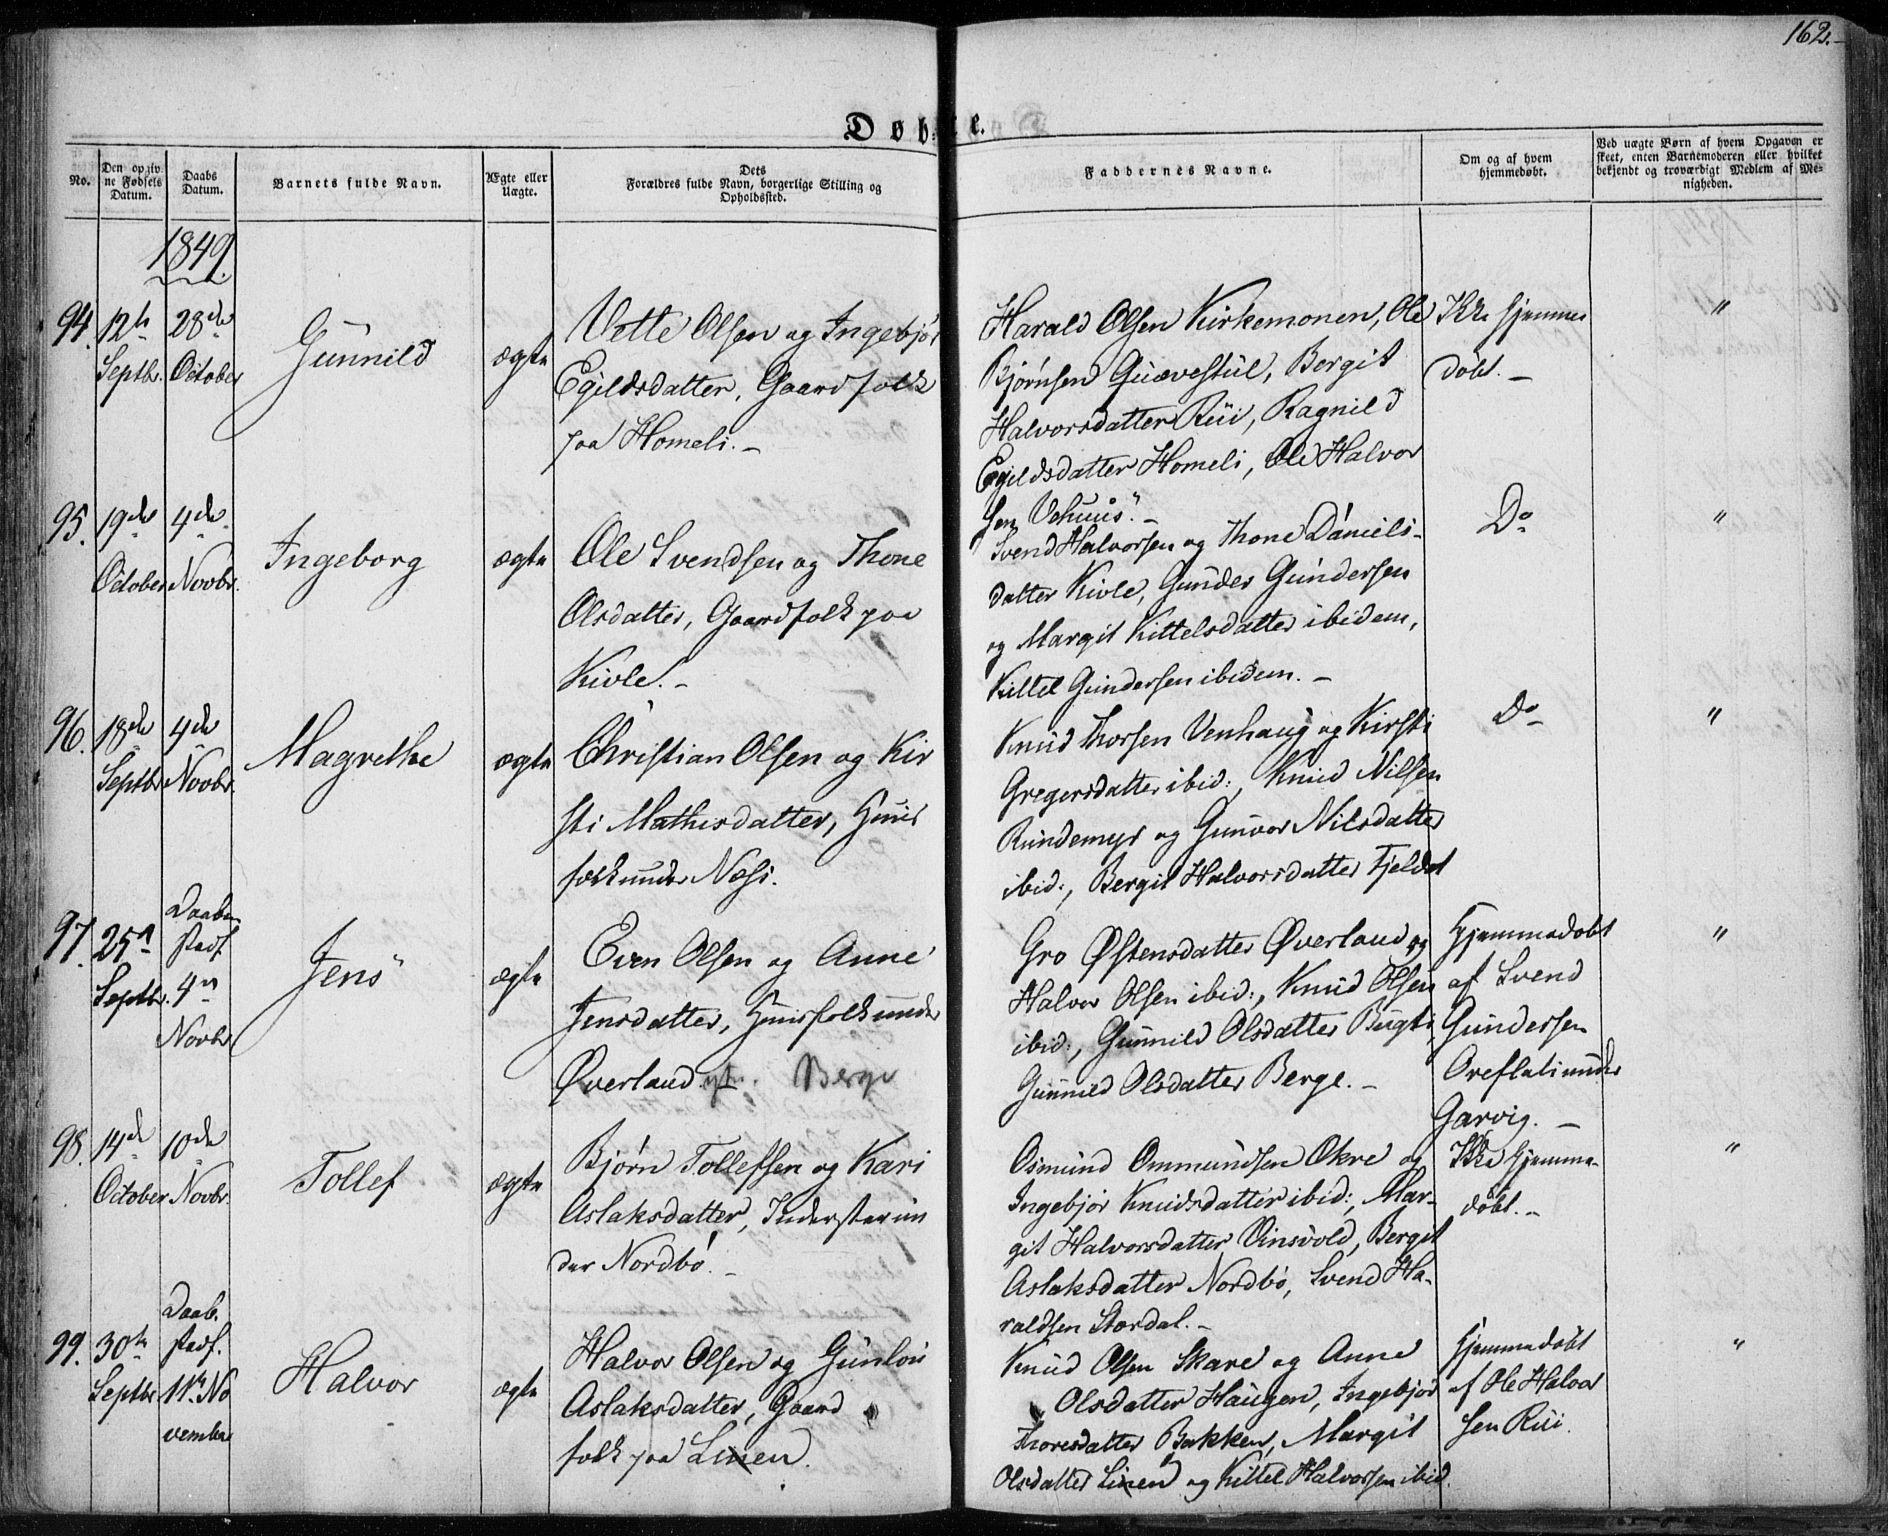 162.
Døbte.
No.
Den opgiv
ne Fødsels
Datum.
Daabs
Datum.
Barnets fulde Navn.
Ægte eller
Uægte.
Dets
Forældres fulde Navn, borgerlige Stilling og
Opholdssted.
Faddernes Navne.
Om og af hvem
hjemmedøbt.
Ved uægte Børn af hvem Opgaven er
skeet, enten Barnemoderen eller hvilket
bekjendt og troværdigt Medlem af Me-
nigheden.
1849.
94.
12te
Septbr.
28de
October
Gunnild
ægte
Vetle Olsen og Ingebjør
Egildsdatter, Gaardfolk
paa Homeli.-
Harald Olsen Kirkemonen, Ole
Bjørnsen Guævestul, Bergit
Halvorsdatter Rui, Ragnild
Egildsdatter Homeli, Ole Halvor
sen Vehuus.-
Ikke hjemme
døbt.-
"
95.
19de
October
4de
Novbr.
Ingeborg
ægte
Ole Svendsen og Thone
Olsdatter, Gaardfolk paa
Kivle.-
Svend Halvorsen og Thone Daniels-
datter Kivle, Gunder Gundersen
og Margit Kittelsdatter ibidem,
Kittel Gundersen ibidem.-
Do
"
96.
18de
Septbr.
4de
Novbr.
Magrethe
ægte
Christian Olsen og Kir
sti Mathisdatter, Huus
folk under Næss.
Knud Thorsen Venhaug og Kirsti
Gregersdatter ibid:, Knud Nilsen
Rundemyr og Gunvor Nilsdatter
ibid:, Bergit Halvorsdatter Fjeldet
Do
"
97.
25n
Septbr.
Daaben
stadf.
4n
Novbr.
Jens
ægte
Even Olsen og Anne
Jensdatter, Huusfolk under
Øverland. Berge
Gro Østensdatter Øverland og
Halvor Olsen ibid:, Knud Olsen
ibid:, Gunnild Olsdatter Bugti,
Gunnild Olsdatter Berge.-
Hjemmedøbt
af Svend
Gundersen
Oreflati under
Garvig.-
"
98.
14de
October
10de
Novbr.
Tollef
ægte
Bjørn Tollefsen og Kari
Aslaksdatter, Inderster un
der Nordbø.-
Osmund Ommundsen Okre og
Ingebjør Knudsdatter ibid:, Mar-
git Halvorsdatter Vinsvold, Bergit
Aslaksdatter Nordbø, Svend Ha-
raldsen Stordal.-
Ikke hjemme-
døbt.-
"
99.
30te
Septbr.
Daab.
stadf.
11te No
vember
Halvor
ægte
Halvor Olsen og Gunlou
Aslaksdatter, Gaard
folk paa Linen.
Knud Olsen Skare og Anne
Olsdatter Haugen, Ingebjør
Thoresdatter Bakken, Margit
Olsdatter Linen og Kittel Halvorsen ibid.
Hjemmedøbt
af Ole Halvor
sen Rui.
"